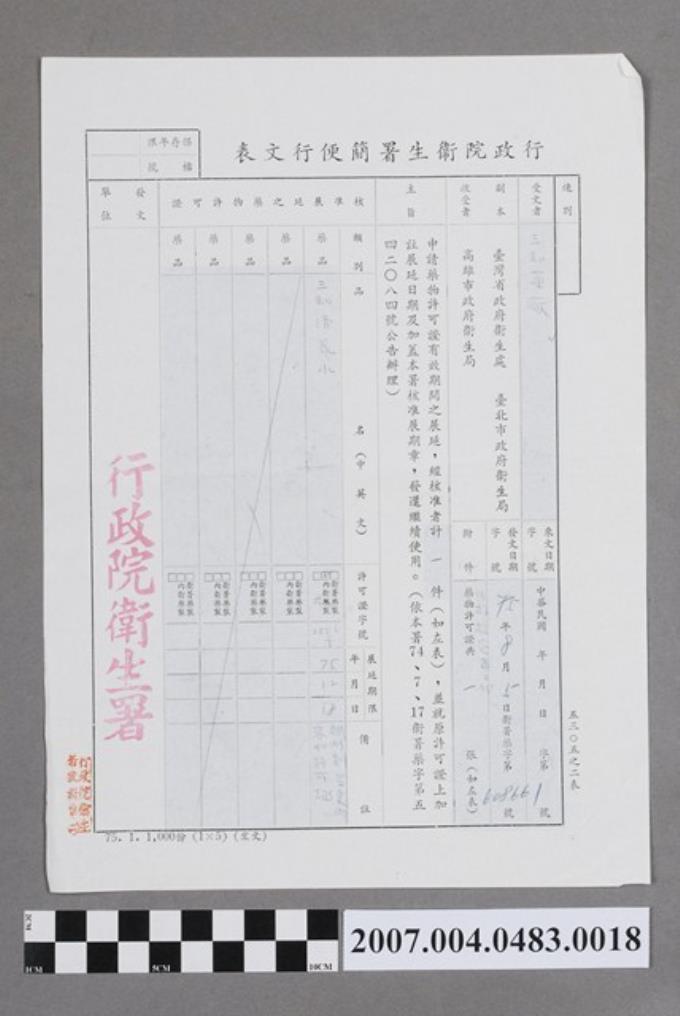 行政院衛生署簡便行文表
保存年限
檔號
速別
受文者
三和
副本收受者
臺灣省政府衛生處 臺北市政府衛生局
高雄市政府衛生局
來文日期字號
中華民國 年 月 日 字第 號
發文日期字號
75年8月5日衛署藥字第608661號
附件
藥物許可證共一張(如左表)
主旨
申請藥物許可證有效期間之展延,經核准者計一件(如左表),並就原許可證上加
註展延日期及加蓋本署核准展期章,發還繼續使用。(依本署74、7、17衛署藥字第五
四二〇八四號公告辦理)
核准展延之藥物許可證
類別
品名(中英文)
許可證字號
展延期限
年月日
備註
藥品
三和
水
衛署藥製
內衛藥製
75
12
18
藥品
衛署藥製
內衛藥製
藥品
衛署藥製
內衛藥製
藥品
衛署藥製
內衛藥製
藥品
衛署藥製
內衛藥製
發文單位
行政院衛生署
五三〇五之二表
75. 1. 1,000份 (1×5) (京文)
1CM
5CM
10CM
2CM
2007.004.0483.0018